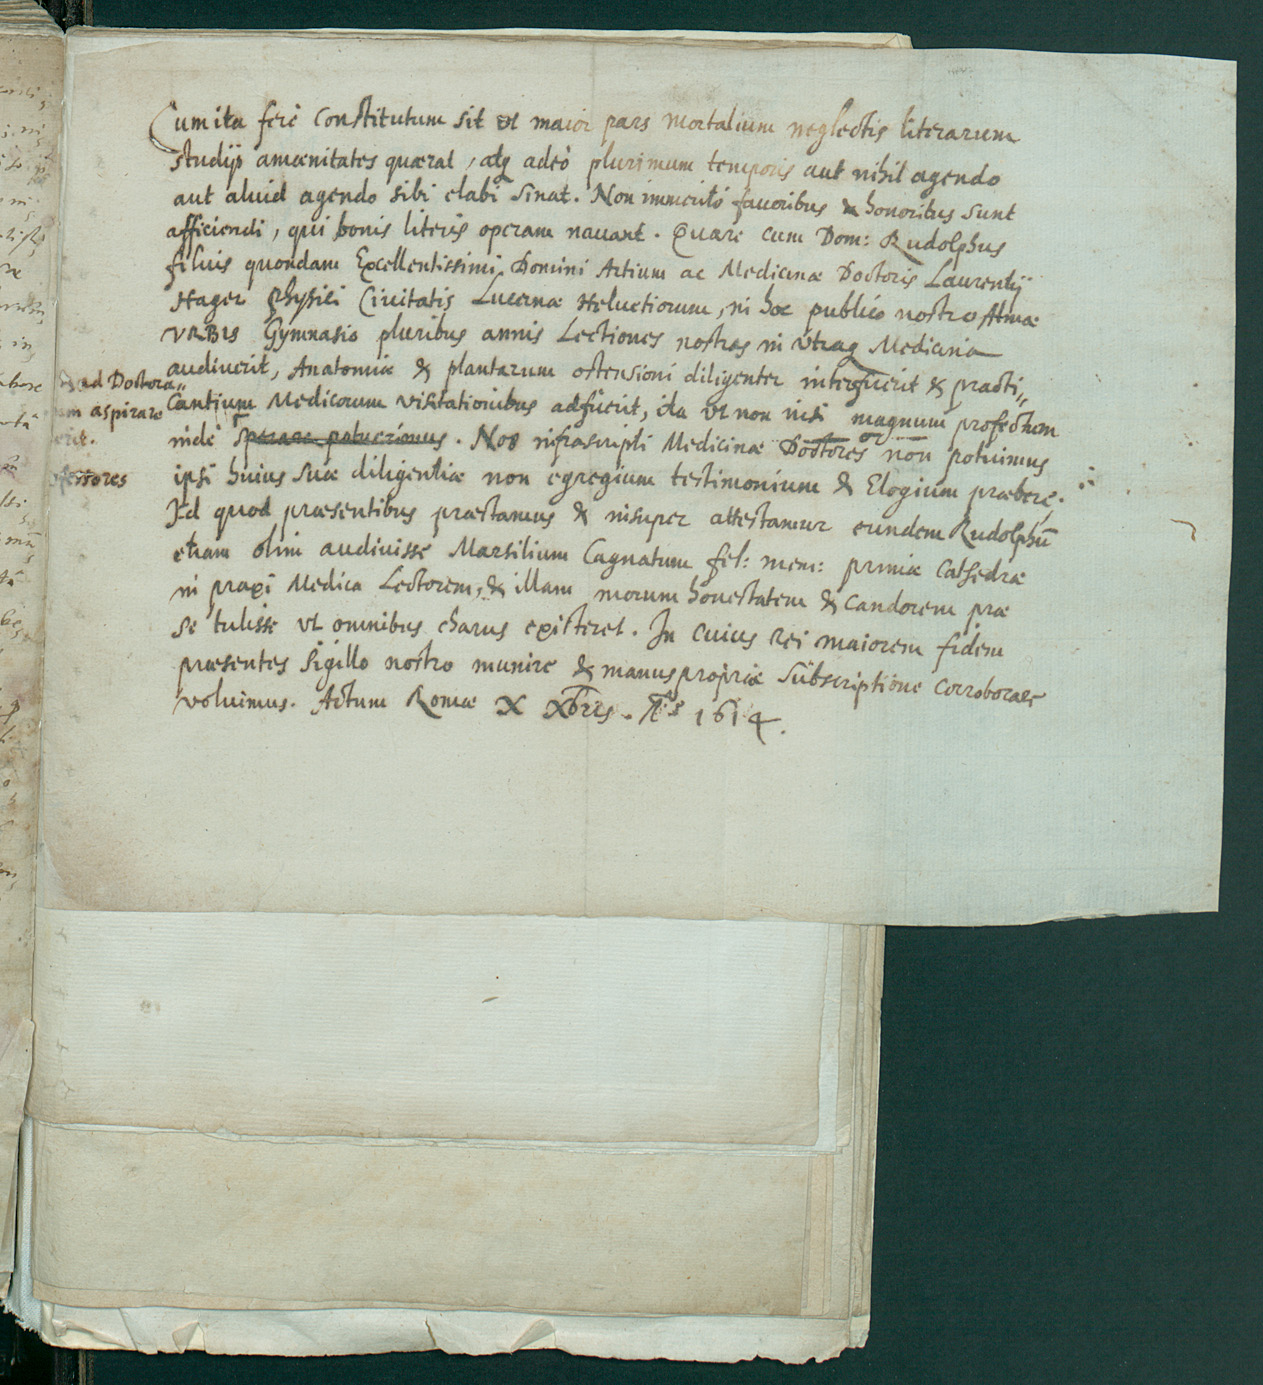 Cum ita ferè Constitutum sit vt maior pars mortalium neglectis literarum
studijs amœnitates quærat, atq adeò plurimum temporis aut nihil agendo
aut aliud agendo sibi elabi sinat. Non immeritò fauoribus & honoribus sunt
afficiendi, qui bonis literis operam nauant. Quare cum Dom: Rudolphus
filius quondam Excellentissimi Domini Artium ac Medicinæ Doctoris Laurentij
Hager Physici Ciuitatis Lucernæ Heluetiorum, in hoc publico nostro Almæ
VRBIS Gymnasio pluribus annis Lectiones nostras in vtraq Medicina
audiuerit, Anatomiæ & plantarum ostensioni diligenter interfuerit & practi„
Cantium Medicorum visitationibus adfuerit, ita vt non nisi magnum profectum
& ad Doctora„
aspirare
inde sperare potuerimus. Nos infrascripti Medicinæ Doctores non potuimus
ipsi huius suæ diligentiæ non egregium testimonium & Elogium præbere.
fessores
Id quod præsentibus præstamus & insuper attestamur eundem Rudolphū
etiam olim audiuisse Marsilium Cagnatum fel: mem: primæ Cathedræ
in praxi Medica Lectorem, & illam morum honestatem & candorem præ
se tulisse vt omnibus charus existeret. In cuius rei maiorem fidem
præsentes sigillo nostro munire & manus propriæ subscriptione corroborare
voluimus. Actum Romæ X Xbris. 1614.